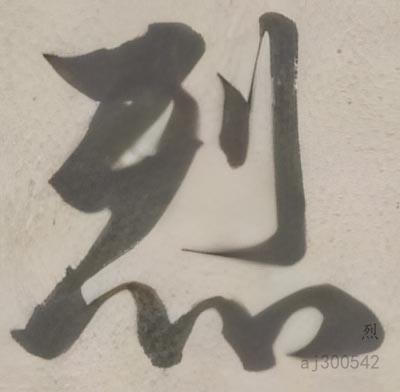 烈
烈
aj300542